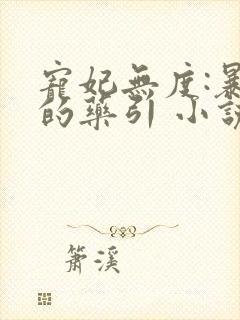 寵妃無度:暴
的藥引 小說
簫溪